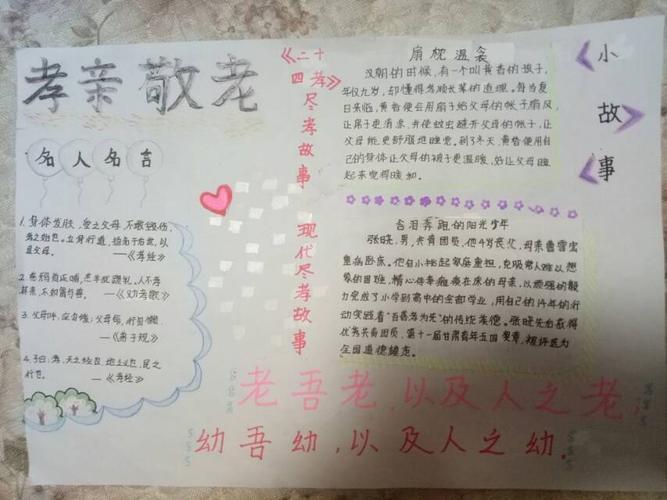 孝亲敬老
名人名言
1. 身体发肤,受之父母,不敢毁伤,
孝之始也。立身行道,扬名于后世,以
——《孝经》
2.
——《劝孝歌》
3. 父母呼,应勿缓;父母命,行勿懒
——《弟子规》
4. 子曰:孝,天之经也,地之义也,民之
行也。
——《孝经》
《二十
四孝》
尽孝故事
现代尽孝故事
扇枕温衾
汉朝的时候,有一个叫黄香的孩子,
年仅九岁,却懂得孝顺长辈的道理。每当夏
日来临,黄香便会用扇子给父母的帐子扇风,
让席子更清凉,并使蚊虫避开父母的帐子,让
父母能更舒服地睡觉。到了冬天,黄香便用自
己的身体让父母的被子更温暖,好让父母睡
起来觉得暖和。
小故事
含泪奔跑的阳光少年
张晓,男,共青团员,他4岁丧父,母亲
重病卧床,他自小挑起家庭重担,克服常人难以想
象的困难,精心侍奉瘫痪在床的母亲,以顽强的毅
力完成了小学到高中的全部学业,用自己的
动实践着“百善孝为先”的传统美德。张晓先后获得
优秀共青团员、第十一届甘肃青年五四奖章、被评选为
全国道德模范。
老吾老,以及人之老,
幼吾幼,以及人之幼.